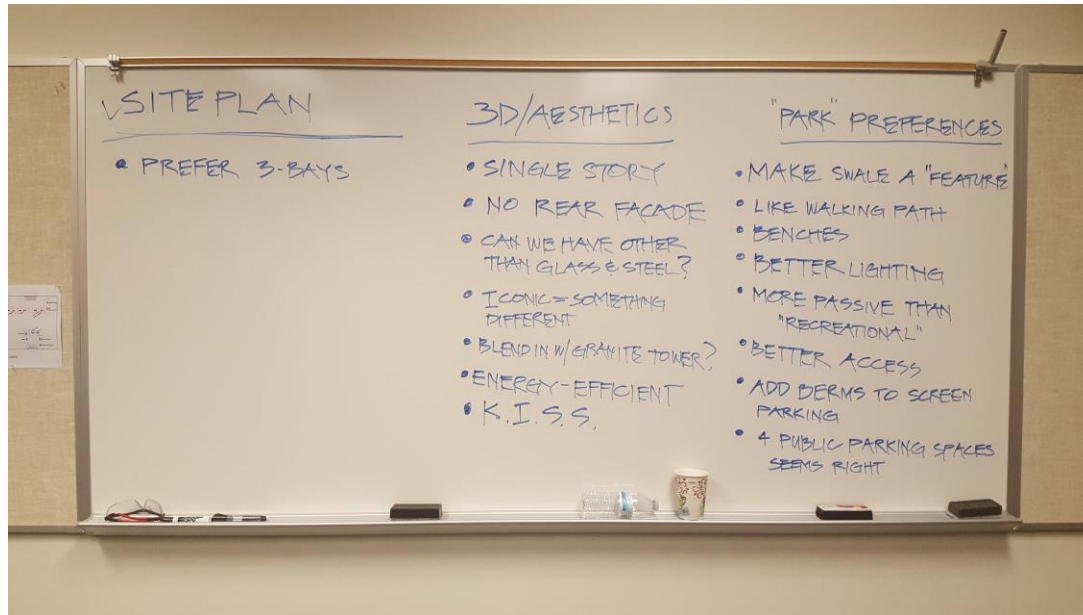 √SITE PLAN
• PREFER 3-BAYS
3D/AESTHETICS
• SINGLE STORY
• NO REAR FACADE
• CAN WE HAVE OTHER
THAN GLASS & STEEL?
• ICONIC = SOMETHING
DIFFERENT
• BLEND IN W/ GRANITE TOWER?
• ENERGY-EFFICIENT
• K.I.S.S.
"PARK" PREFERENCES
• MAKE SWALE A "FEATURE"
• LIKE WALKING PATH
• BENCHES
• BETTER LIGHTING
• MORE PASSIVE THAN
"RECREATIONAL"
• BETTER ACCESS
• ADD BERMS TO SCREEN
PARKING
• 4 PUBLIC PARKING SPACES
SEEMS RIGHT